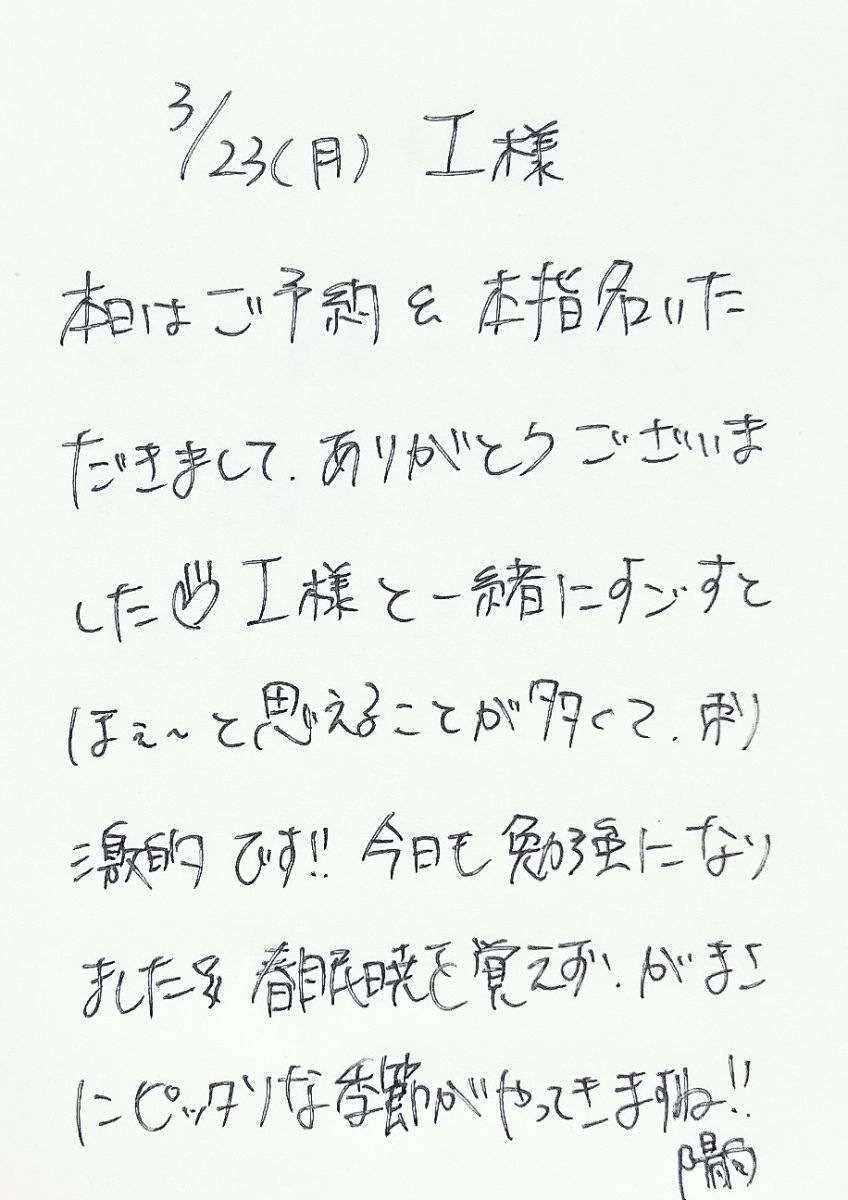 3/23(月) 工様
本日はご予約&本指名いた
だきまして、ありがとうございま
した 工様と一緒にすごすと
ほぇ~と思えることが多くて、刺
激的です!! 今日も勉強になり
ました 春眠暁を覚えず、がまさ
にピッタリな季節がやってきますね!!